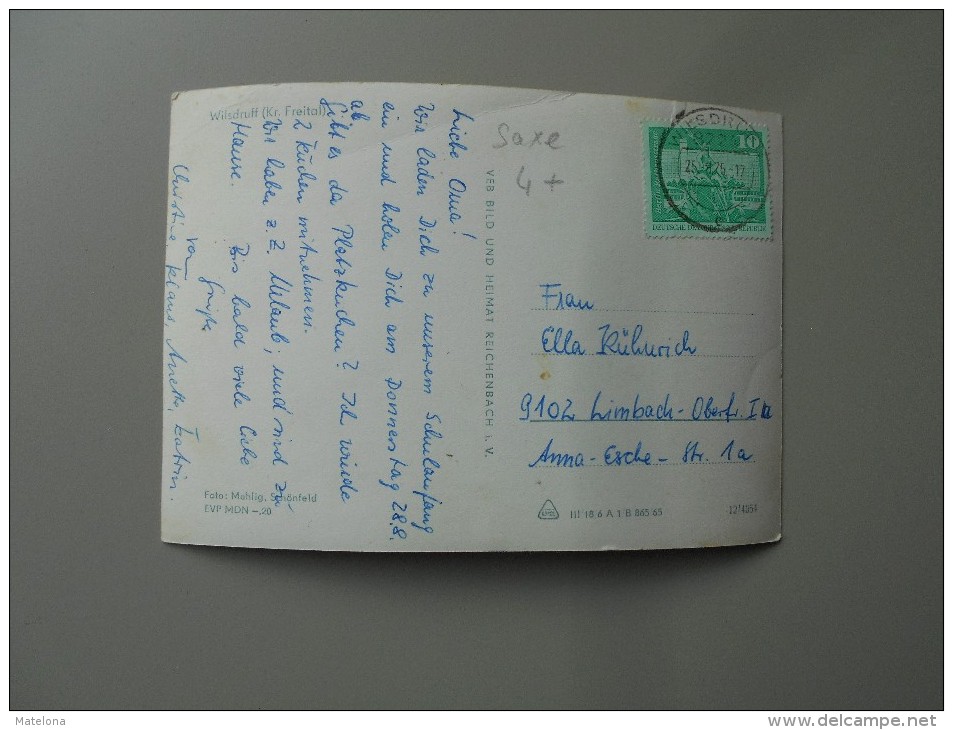 Wilsdruff (Kr. Freital)
Liebe Oma!
Wir laden Dich zu unserem Schulanfang
ein und holen Dich am Donnerstag 28.8.
ab.
Gibt es da Platzkuchen? Ich würde
2 Kuchen mitnehmen.
Wir haben z. Z. Urlaub, und sind zu
Hause. Bis bald viele liebe
Grüße
von
Christine, Klaus, Katrin.
Foto: Mühlig, Schönfeld
EVP MDN –,20
VEB BILD UND HEIMAT REICHENBACH i. V.
Saxe
4+
WILSDRUFF
10
DEUTSCHE DEMOKRATISCHE REPUBLIK
Frau
Ella Rühmrich
9102 Limbach-Oberfr. I
Anna-Esche-Str. 1a
III 18 6 A 1 B 865/65
Matelona
www.delcampe.net